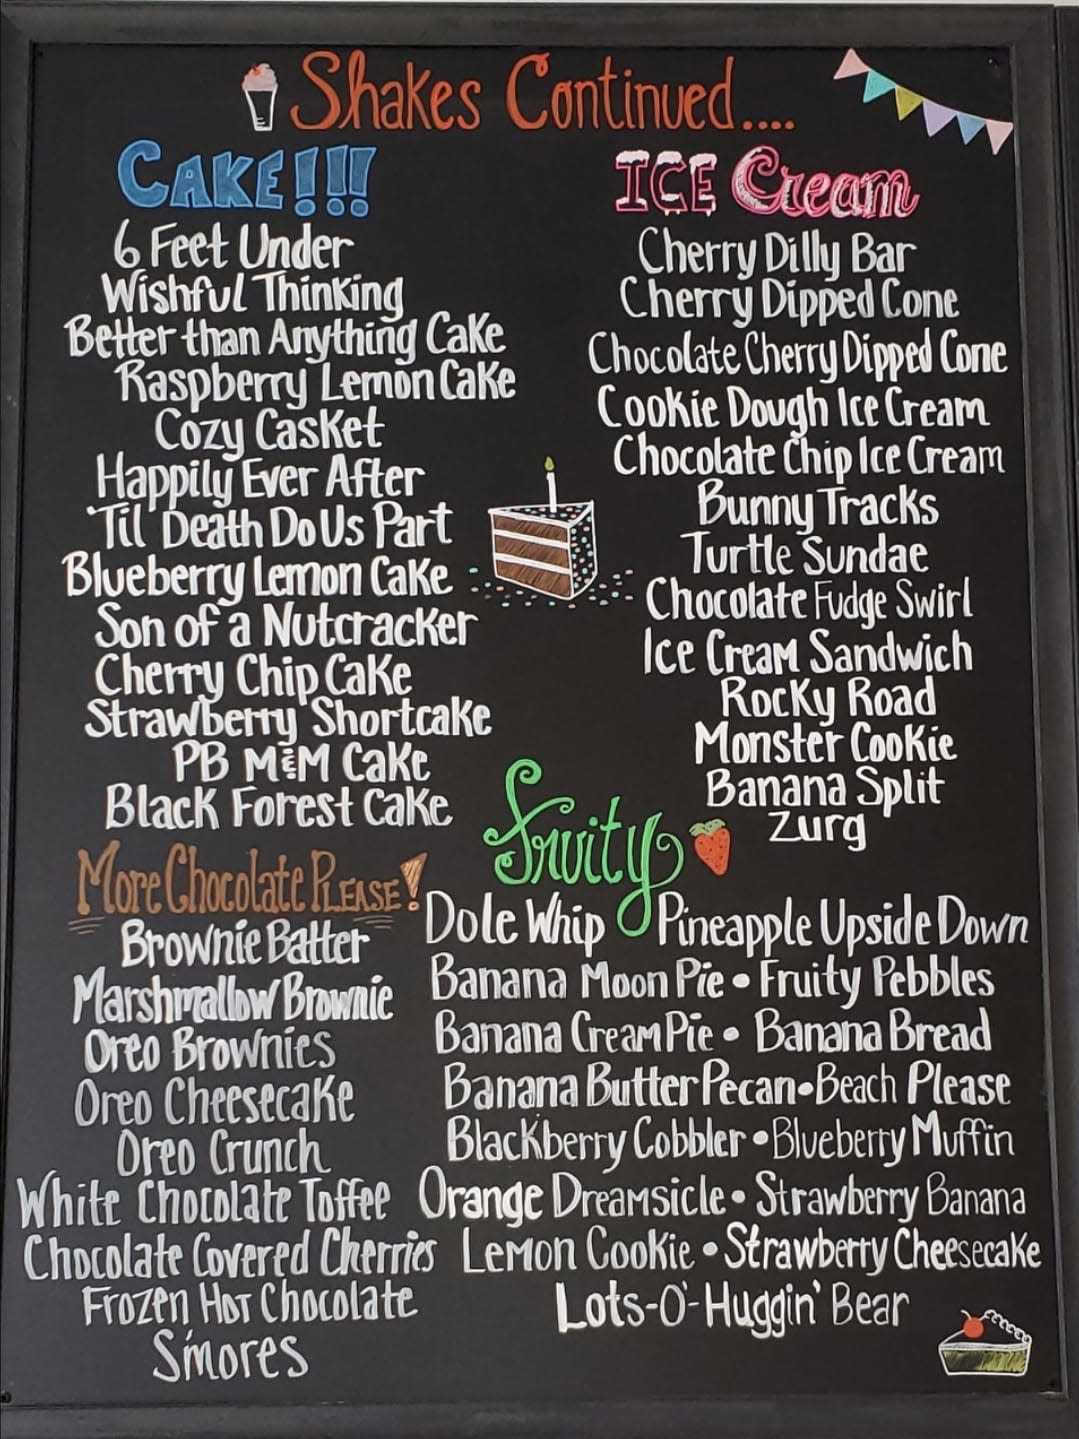 Shakes Continued....
CAKE!!!
6 Feet Under
Wishful Thinking
Better than Anything Cake
Raspberry Lemon Cake
Cozy Casket
Happily Ever After
'Til Death Do Us Part
Blueberry Lemon Cake
Son of a Nutcracker
Cherry Chip Cake
Strawberry Shortcake
PB M&M Cake
Black Forest Cake
ICE Cream
Cherry Dilly Bar
Cherry Dipped Cone
Chocolate Cherry Dipped Cone
Cookie Dough Ice Cream
Chocolate Chip Ice Cream
Bunny Tracks
Turtle Sundae
Chocolate Fudge Swirl
Ice Cream Sandwich
Rocky Road
Monster Cookie
Banana Split
Zurg
More Chocolate Please!
Brownie Batter
Marshmallow Brownie
Oreo Brownies
Oreo Cheesecake
Oreo Crunch
White Chocolate Toffee
Chocolate Covered Cherries
Frozen Hot Chocolate
S'mores
Fruity
Dole Whip Pineapple Upside Down
Banana Moon Pie • Fruity Pebbles
Banana Cream Pie • Banana Bread
Banana Butter Pecan • Beach Please
Blackberry Cobbler • Blueberry Muffin
Orange Dreamsicle • Strawberry Banana
Lemon Cookie • Strawberry Cheesecake
Lots-O'-Huggin' Bear